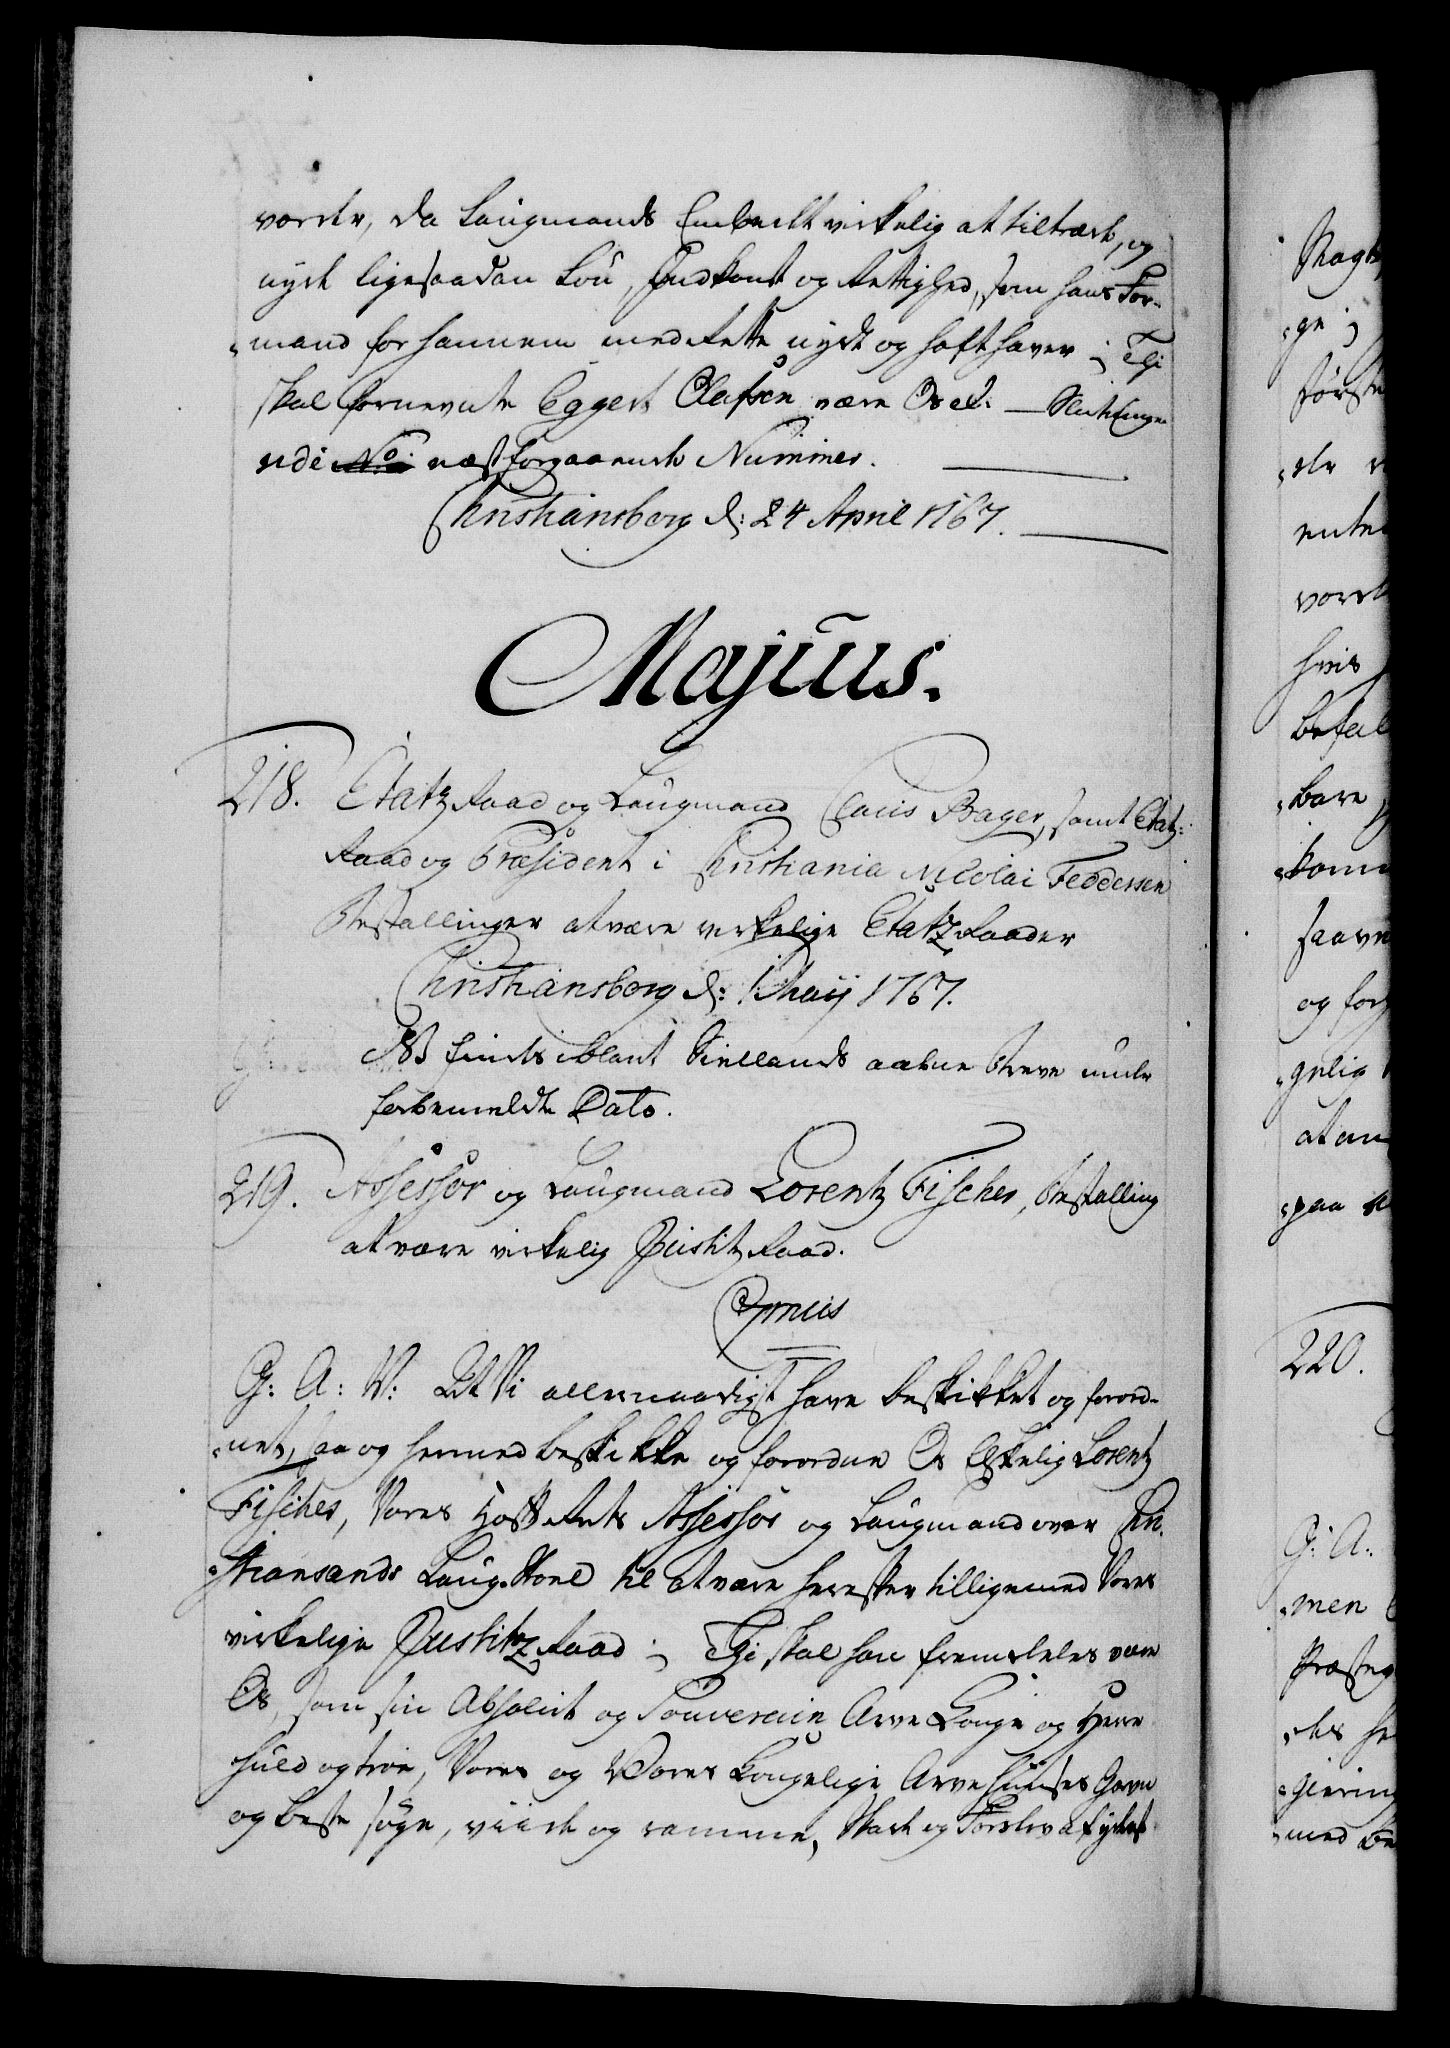 vorder, da Laugmands Embedet virkelig at tiltræde, og
nyde ligesaadan Løn, Indkomst og Rettighed, som hans For-
mand for hannem med Rette nydt og haft haver; Thi
skal fornevnte Eggert Olafsen være Os etc: — Slutningen
udi No næstforgaaende Nummer.
Christiansborg d: 24 April 1767.
Majus.
218. Etatz Raad og Laugmand Claus Bager, samt Etatz-
Raad og Præsident i Christiania Nicolai Feddersen
Bestallinger at være virkelige Etatz Raader
Christiansborg d: 1 Maij 1767.
NB findes iblant Siellands aabne Breve under
forbemeldte Dato.
219. Assessor og Laugmand Lorentz Fischer, Bestalling
at være virkelig Justitz Raad.
G: A: V: At Vi allernaadigst have beskikket og forord-
net, saa og hermed beskikke og forordne Os Elskelig Lorentz
Fischer, Vores Hoff Rets Assessor og Laugmand over Chri-
stiansands Laug-Stoel til at være herefter tilligemed Vores
virkelige Justitz Raad; Thi skal han fremdeles være
Os, som sin Absolut og Souverain Arve Konge og Herre
huld og troe, Vores og Vores Kongelige Arve Huuses Gavn
og beste søge, viide og ramme, Skade og Forderv afværge
Magt
-ge;
første
-ele
enten
vorde
hvis
befal
-bare
-komm
saavel
og for
-gelig
at an
-paa
220.
G: A:
-men
Præste
-des he
-giering
-med